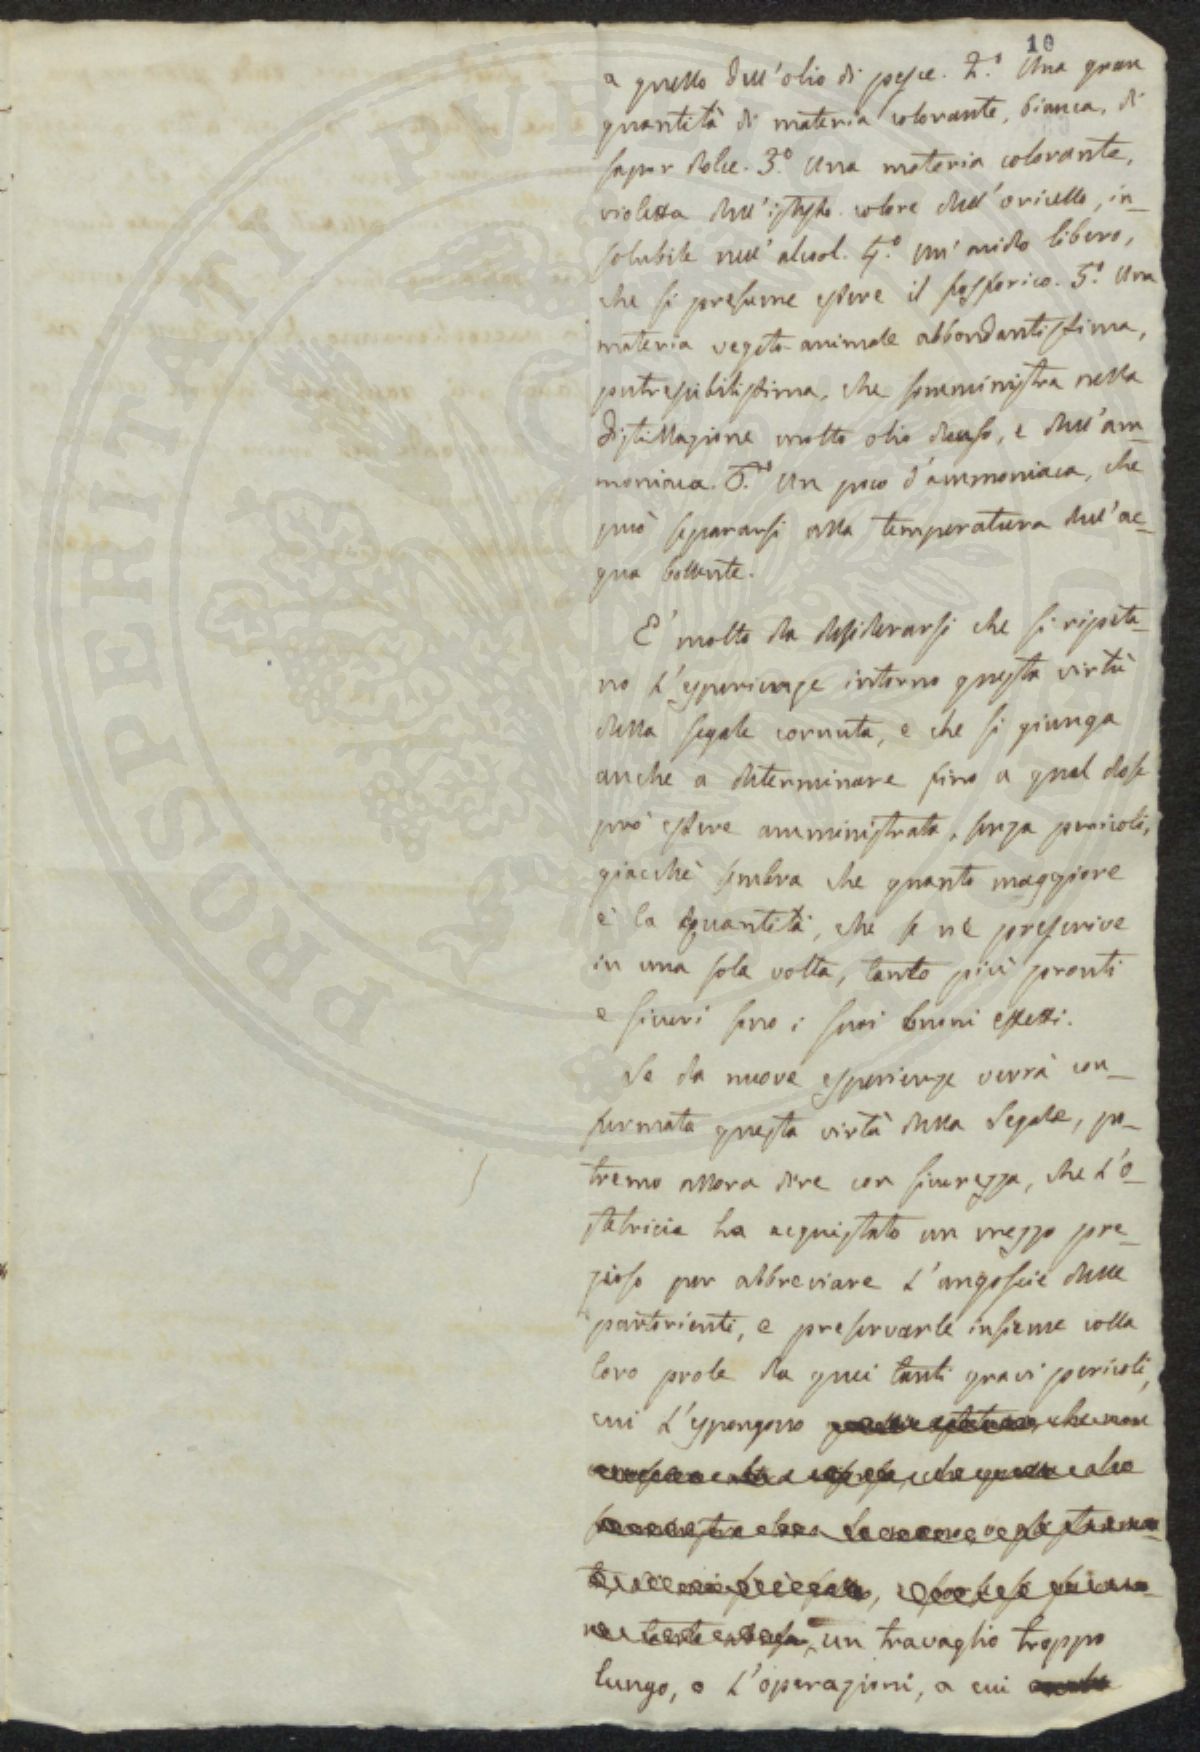 10
a quello dell'olio di pesce. 2.° Una gran
quantità di materia colorante, bianca, di
sapor dolce. 3.° Una materia colorante,
violetta dell'istesso colore dell'oricello, in-
solubile nell'alcool. 4.° Un' acido libero,
che si presume essere il fosforico. 5.° Una
materia vegeto-animale abbondantissima,
putrescibilissima, che somministra nella
distillazione molto olio denso, e dell'am-
moniaca. 6.° Un poco d'ammoniaca, che
può separarsi alla temperatura dell'ac-
qua bollente.
E' molto da desiderarsi che si ripeta-
no l'esperienze intorno questa virtù
della segale cornuta, e che si giunga
anche a determinare fino a qual dose
può essere amministrata, senza pericoli,
giacchè sembra che quanto maggiore
è la quantità, che se ne prescrive
in una sola volta, tanto più pronti
e sicuri sono i suoi buoni effetti.
Se da nuove esperienze verrà con-
fermata questa virtù della Segale, po-
tremo allora dire con sicurezza, che l'O-
stetricia ha acquistato un mezzo pre-
zioso per abbreviare l'angoscie delle
partorienti, e preservarle insieme colla
loro prole da quei tanti gravi pericoli,
cui l'espongono
un travaglio troppo
lungo, o l'operazioni, a cui
PROSPERITATI PUBLICAE